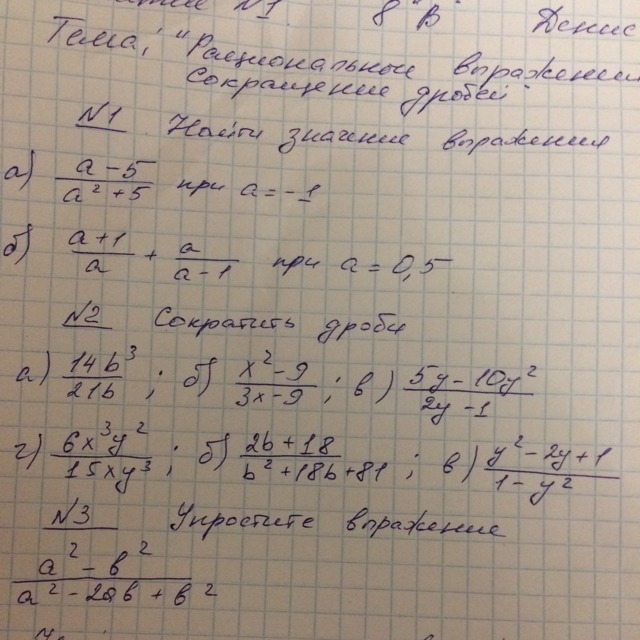 №1. 8 "В" Денис
Тема: "Рациональные выражения
Сокращение дробей"
№1 Найти значение выражения
а) (a-5)/(a²+5) при a=-1
б) (a+1)/a + a/(a-1) при a=0,5
№2 Сократить дроби
а) 14b³/21b ; б) (x²-9)/(3x-9) ; в) (5y-10y²)/(2y-1)
г) 6x³y²/15xy³ ; б) (2b+18)/(b²+18b+81) ; в) (y²-2y+1)/(1-y²)
№3 Упростите выражение
(a²-в²)/(a²-2aв+в²)